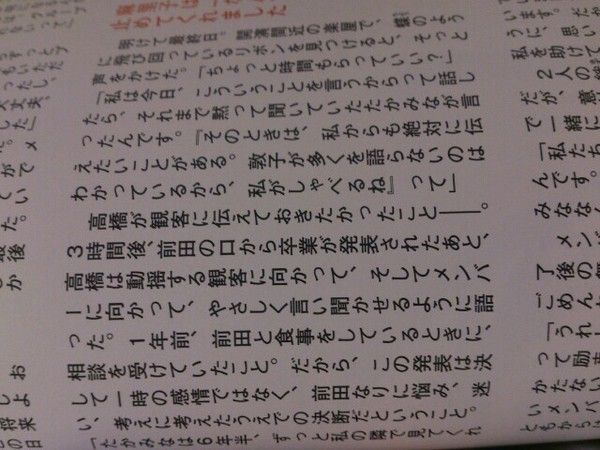 ずっとプ
もいただ
ったし、
大丈夫、
した」
。メ
がで
てい
た。
最後
しか
お
しよ
将来
この日
止めてくれました
明けて最終日。開演間近の楽屋で、蝶のよう
に飛び回っているリボンを見つけると、そっと
声をかけた。「ちょっと時間もらっていい？」
「私は今日、こういうことを言うからって話し
たら、それまで黙って聞いていたたかみなが言
ったんです。『そのときは、私からも絶対に伝
えたいことがある。敦子が多くを語らないのは
わかっているから、私がしゃべるね』って」
高橋が観客に伝えておきたかったこと――。
３時間後、前田の口から卒業が発表されたあと、
高橋は動揺する観客に向かって、そしてメンバ
ーに向かって、やさしく言い聞かせるように語
った。１年前、前田と食事をしているときに、
相談を受けていたこと。だから、この発表は決
して一時の感情ではなく、前田なりに悩み、迷
い、考えに考えたうえでの決断だということ。
「たかみなは６年半、ずっと私の隣で見てくれ
に思い
私を助けて
２人の
だが、意
で一緒に
「私たち
んです。
みななく
メンバ
了後の
ごめん
「うれし
って励ま
かたない
いメンバ